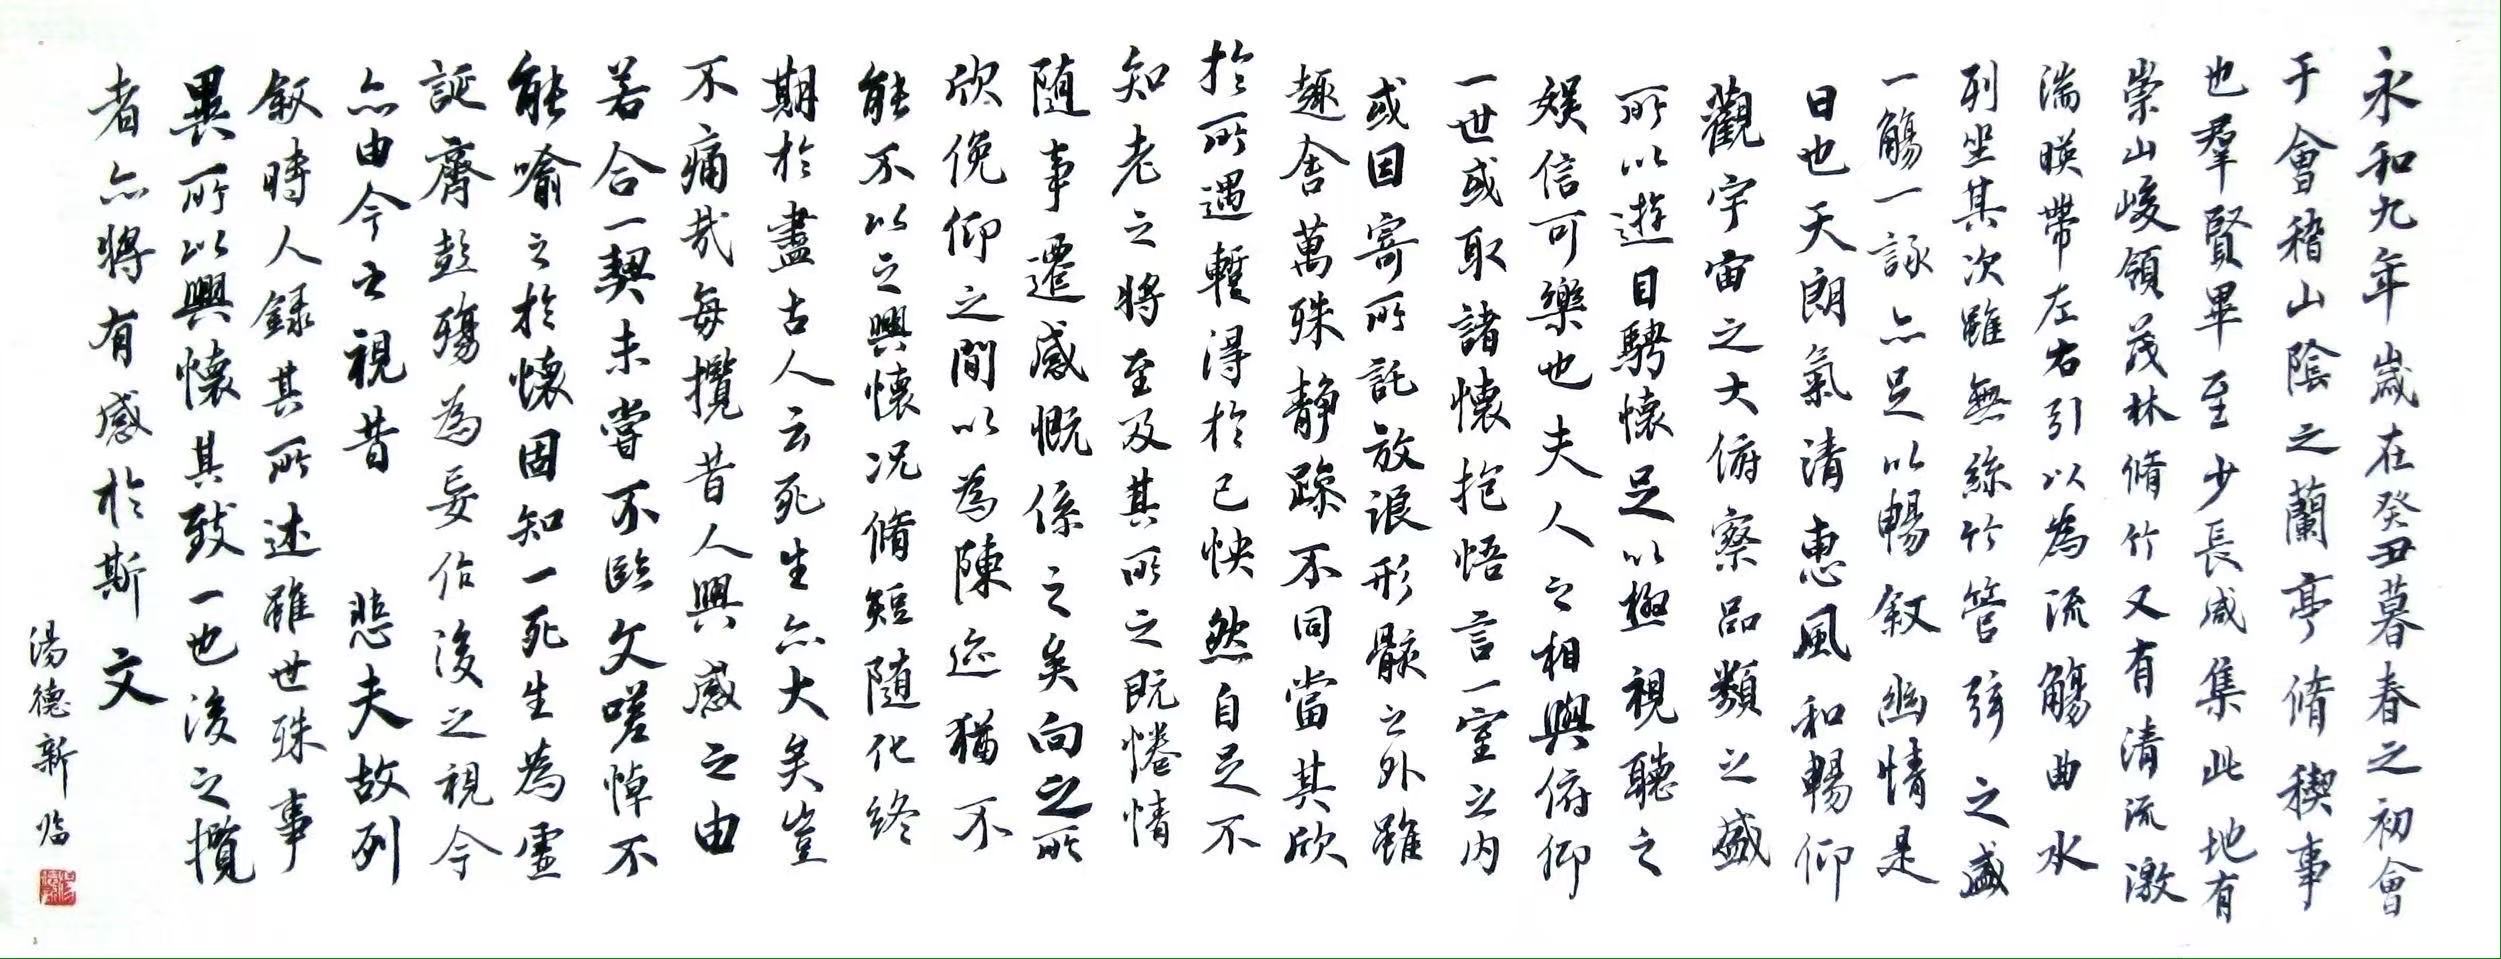 永和九年歲在癸丑暮春之初會
于會稽山陰之蘭亭脩稧事
也羣賢畢至少長咸集此地有
崇山峻領茂林脩竹又有清流激
湍暎帶左右引以為流觴曲水
列坐其次雖無絲竹管弦之盛
一觴一詠亦足以暢叙幽情是
日也天朗氣清惠風和暢仰
觀宇宙之大俯察品類之盛
所以遊目騁懷足以極視聽之
娛信可樂也夫人之相與俯仰
一世或取諸懷抱悟言一室之内
或因寄所託放浪形骸之外雖
趣舍萬殊静躁不同當其欣
於所遇蹔得於己怏然自足不
知老之將至及其所之既惓情
随事遷感慨係之矣向之所
欣俛仰之間以為陳迹猶不
能不以之興懷况脩短随化終
期於盡古人云死生亦大矣豈
不痛哉每攬昔人興感之由
若合一契未嘗不臨文嗟悼不
能喻之於懷固知一死生為虛
誕齊彭殤為妄作後之視今
亦由今之視昔 悲夫故列
叙時人録其所述雖世殊事
異所以興懷其致一也後之攬
者亦將有感於斯文
湯德新临